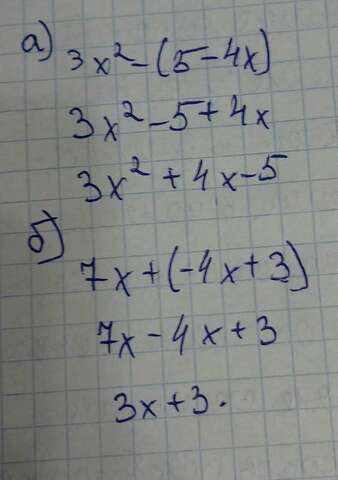 а) 3x² - (5 - 4x)
3x² - 5 + 4x
3x² + 4x - 5
б)
7x + (-4x + 3)
7x - 4x + 3
3x + 3.